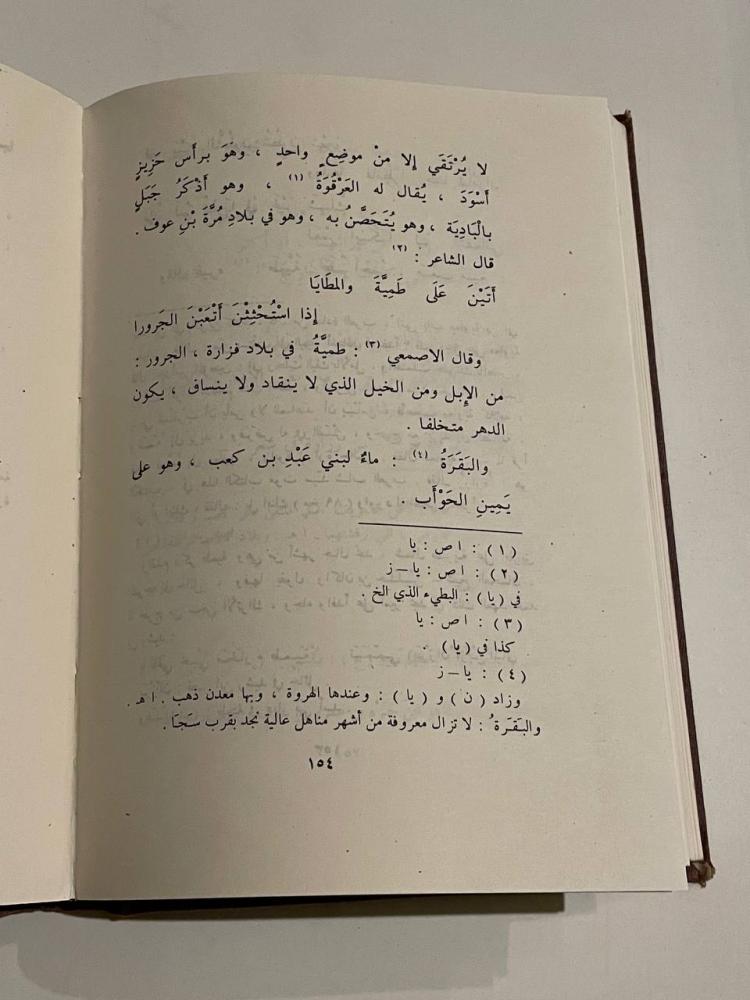 لا يُرْتَقَي إلا مِنْ موضِعٍ واحدٍ ، وهَوَ برأس حَزِيزٍ
أسْوَدَ ، يُقال له العَرْقُوَةُ (١) ، وهو أذْكَرُ جَبَلٍ
بالْبَادِيَة ، وهو يُتَحَصَّنُ به ، وهو في بلادِ مُرَّةَ بْنِ عوف .
قال الشاعر : (٢)
أتَيْنَ عَلَى طَمِيَّةَ والمَطَايَا
إذا اسْتُحْثِثْنَ أتْعَبْنَ الجَرورا
وقال الاصمعي (٣) : طميَّةُ في بلاد فزارة ، الجرور :
من الإبل ومن الخيل الذي لا ينقاد ولا ينساق ، يكون
الدهر متخلفا .
والبَقَرَةُ (٤) : ماءٌ لبني عَبْدِ بن كعب ، وهو على
يَمِينِ الحَوْأَب .
(١) : ا ص : يا
(٢) : ا ص : يا – ز
في ( يا ) : البطيء الذي الخ .
(٣) : ا ص : يا
كذا في ( يا ) .
(٤) : يا – ز
وزاد ( ن ) و ( يا ) : وعندها الهروة ، وبها معدن ذهب . ا هـ .
والبَقَرَةُ : لا تزال معروفة من أشهر مناهل عالية نجد بقرب سَجَا .
١٥٤